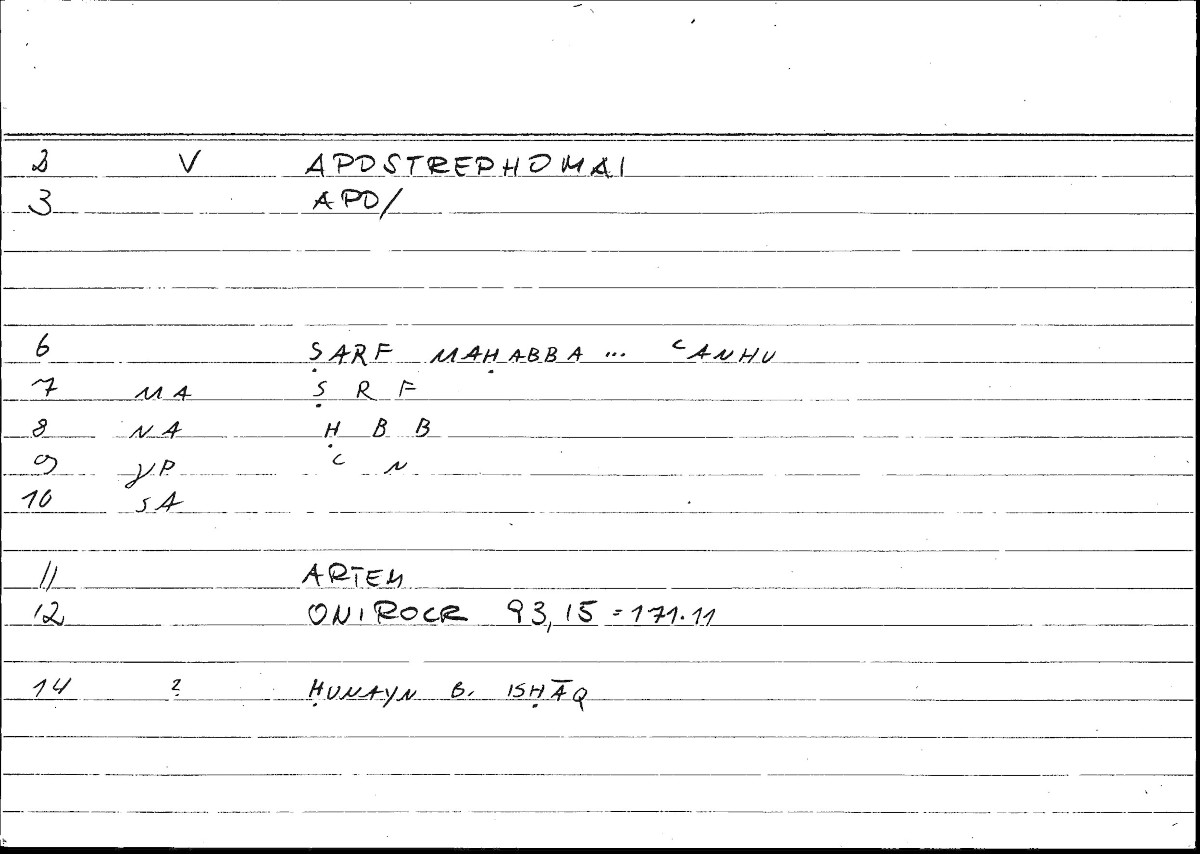 2 V APOSTREPHOMAI
3 APO/
6 ṢARF MAḤABBA ... ʿANHU
7 MA Ṣ R F
8 NA Ḥ B B
9 YP ʿ N
10 SA
11 ARTEM
12 ONIROCR 93,15 = 171.11
14 2 ḤUNAYN B. ISḤĀQ